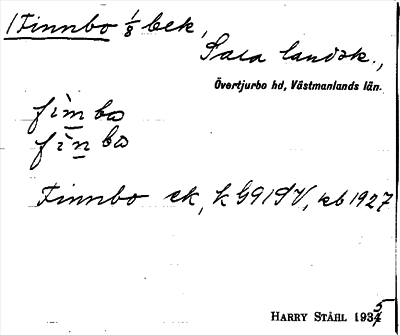 1 Finnbo 1/8 bek,
Sala landsk.,
Övertjurbo hd, Västmanlands län.
fìm bo
fìn bo
Finnbo ek, k G91SV, eb 1927
HARRY STÅHL 1935